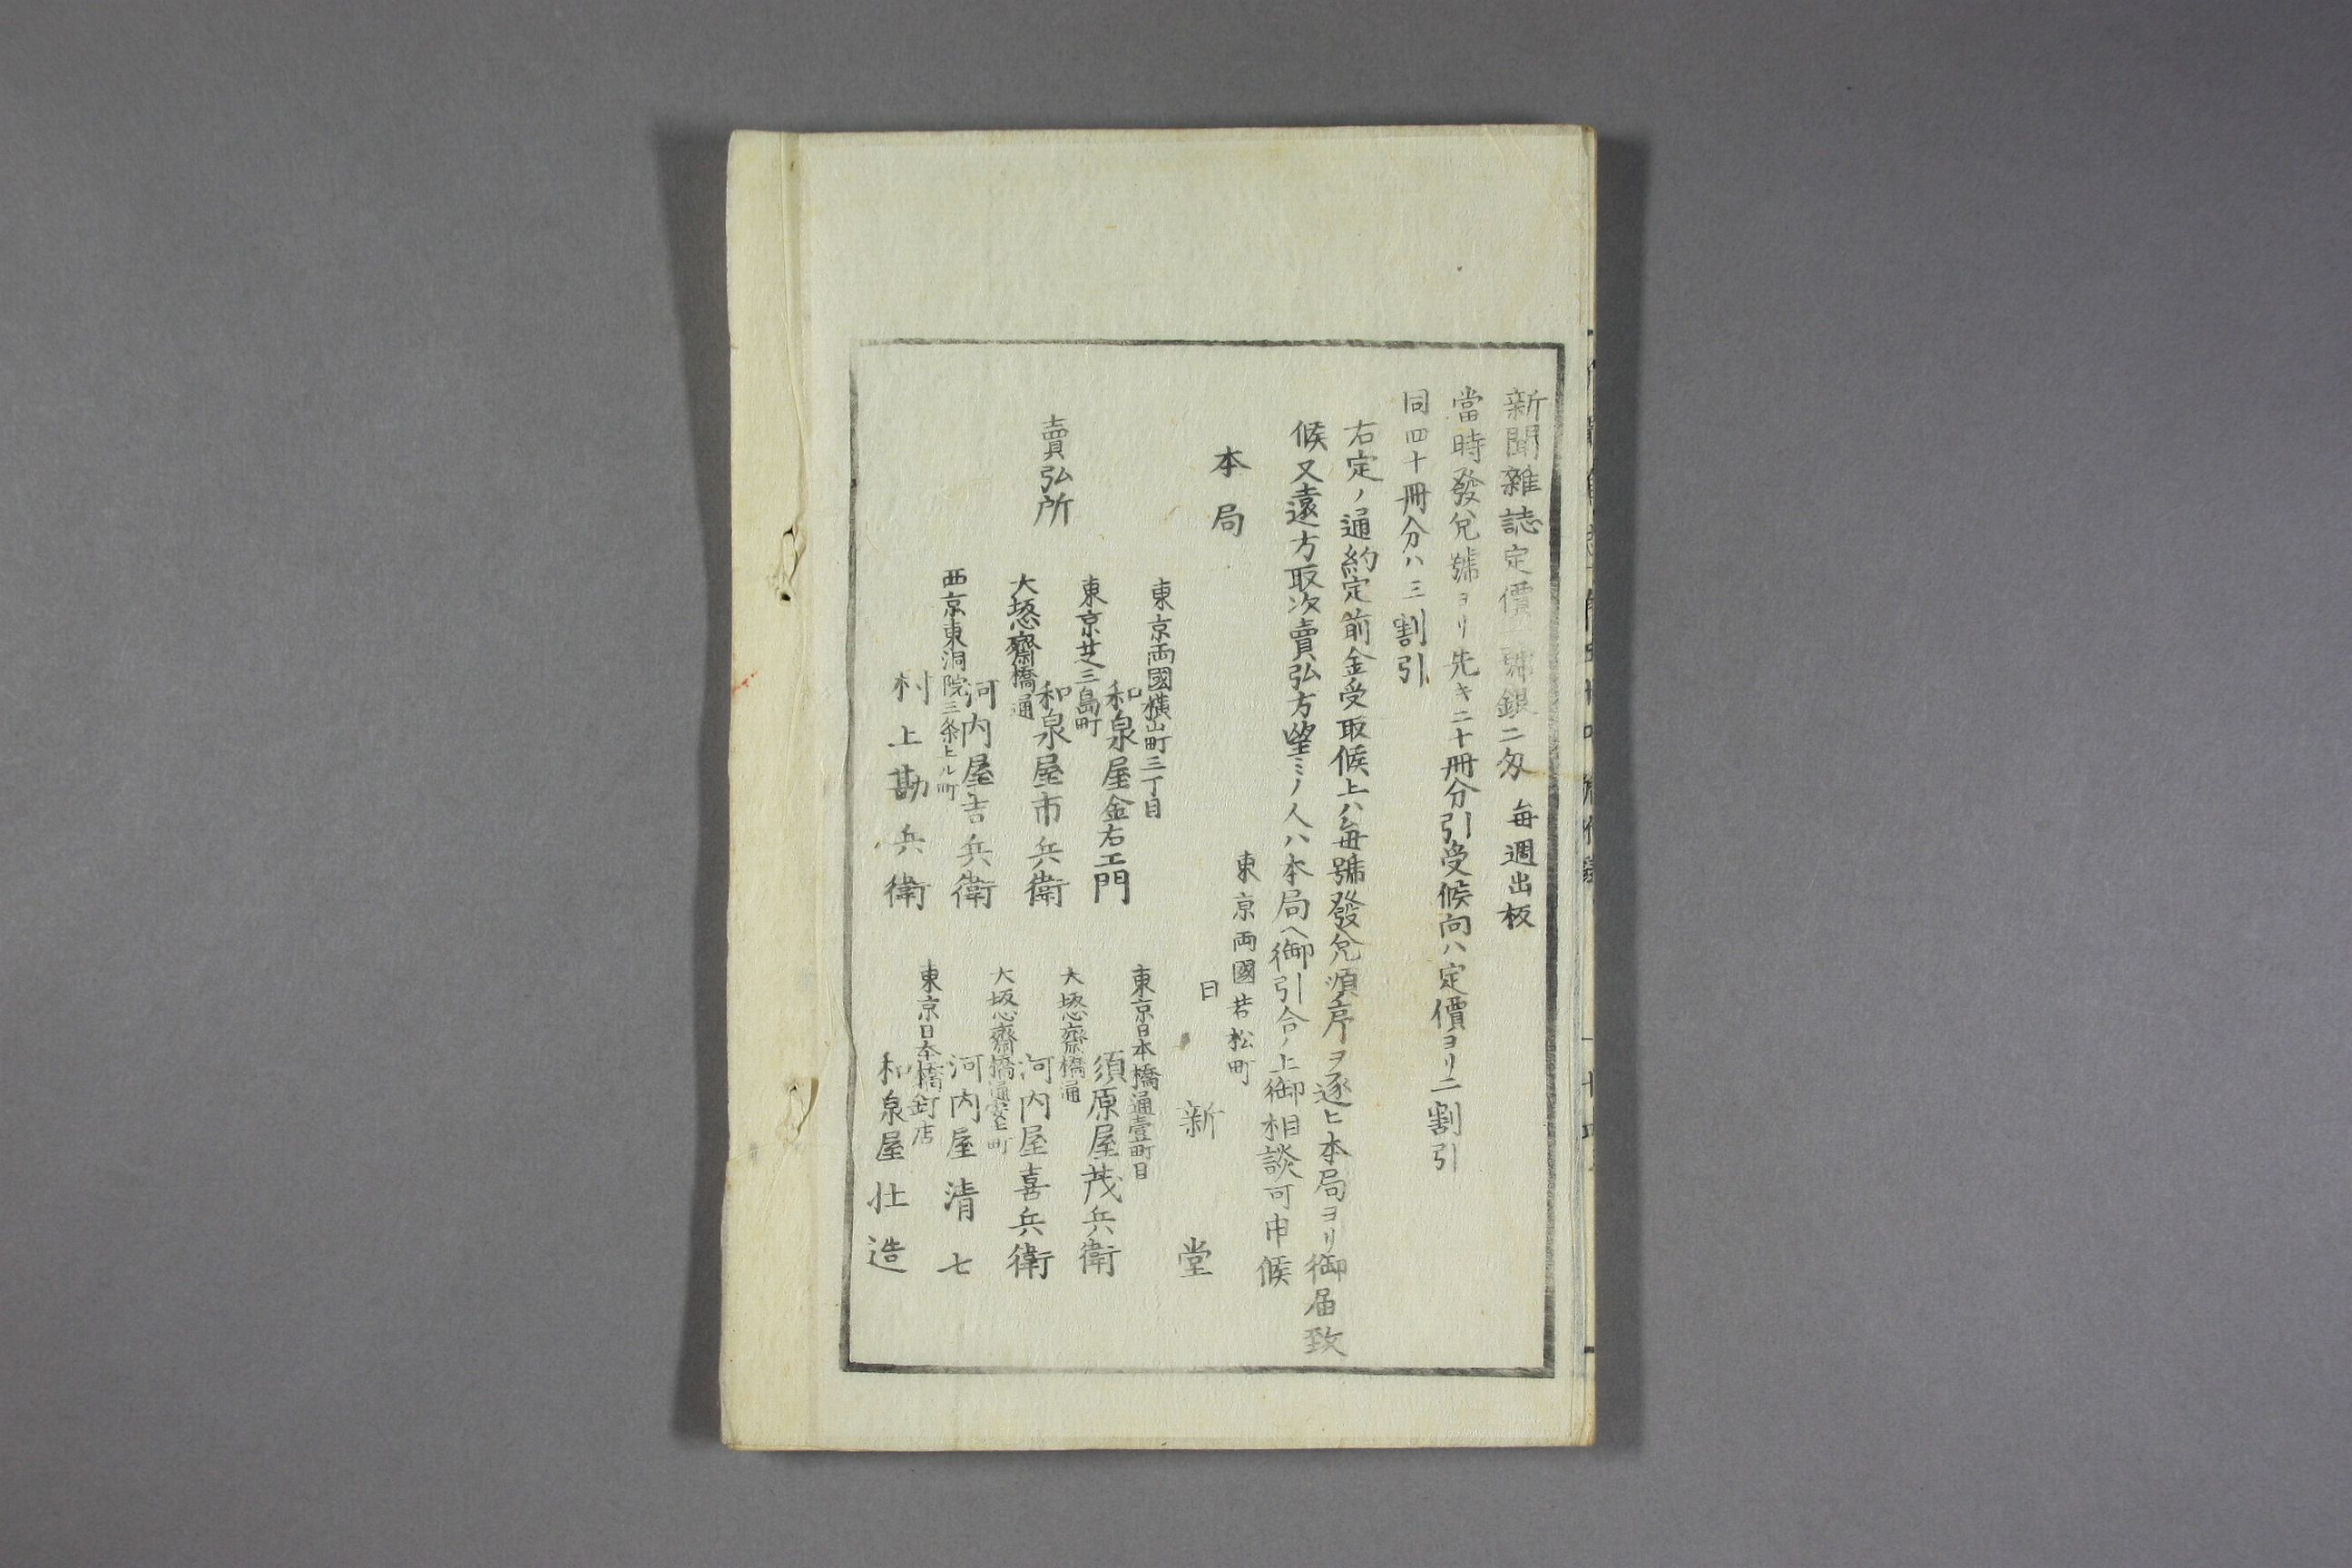 新聞雜誌定價一號銀二匁 毎週出板
當時發兌號ヨリ先キ二十冊分引受候向ハ定價ヨリ二割引
同四十冊分ハ三割引
右定ノ通約定前金受取候上ハ毎號發兌順序ヲ逐ヒ本局ヨリ御届致
候又遠方取次賣弘方望ミノ人ハ本局ヘ御引合ノ上御相談可申候
東京両國若松町
本局 日新堂
賣弘所
東京両國横山町三丁目
和泉屋金右エ門
東京芝三島町
和泉屋市兵衛
大坂心齋橋通
河内屋吉兵衛
西京東洞院三条上ル町
村上勘兵衛
東京日本橋通壹町目
須原屋茂兵衛
大坂心齋橋通
河内屋喜兵衛
大坂心齋橋通安土町
河内屋清七
東京日本橋釘店
和泉屋壮造